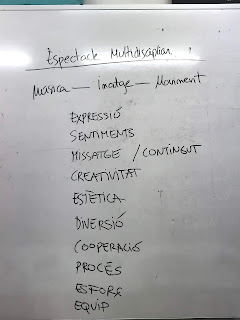 Espectacle Multidisciplinar
Música — imatge — Moviment
EXPRESSIÓ
SENTIMENTS
MISSATGE / CONTINGUT
CREATIVITAT
ESTÈTICA
DIVERSIÓ
COOPERACIÓ
PROCÉS
ESFORÇ
EQUIP